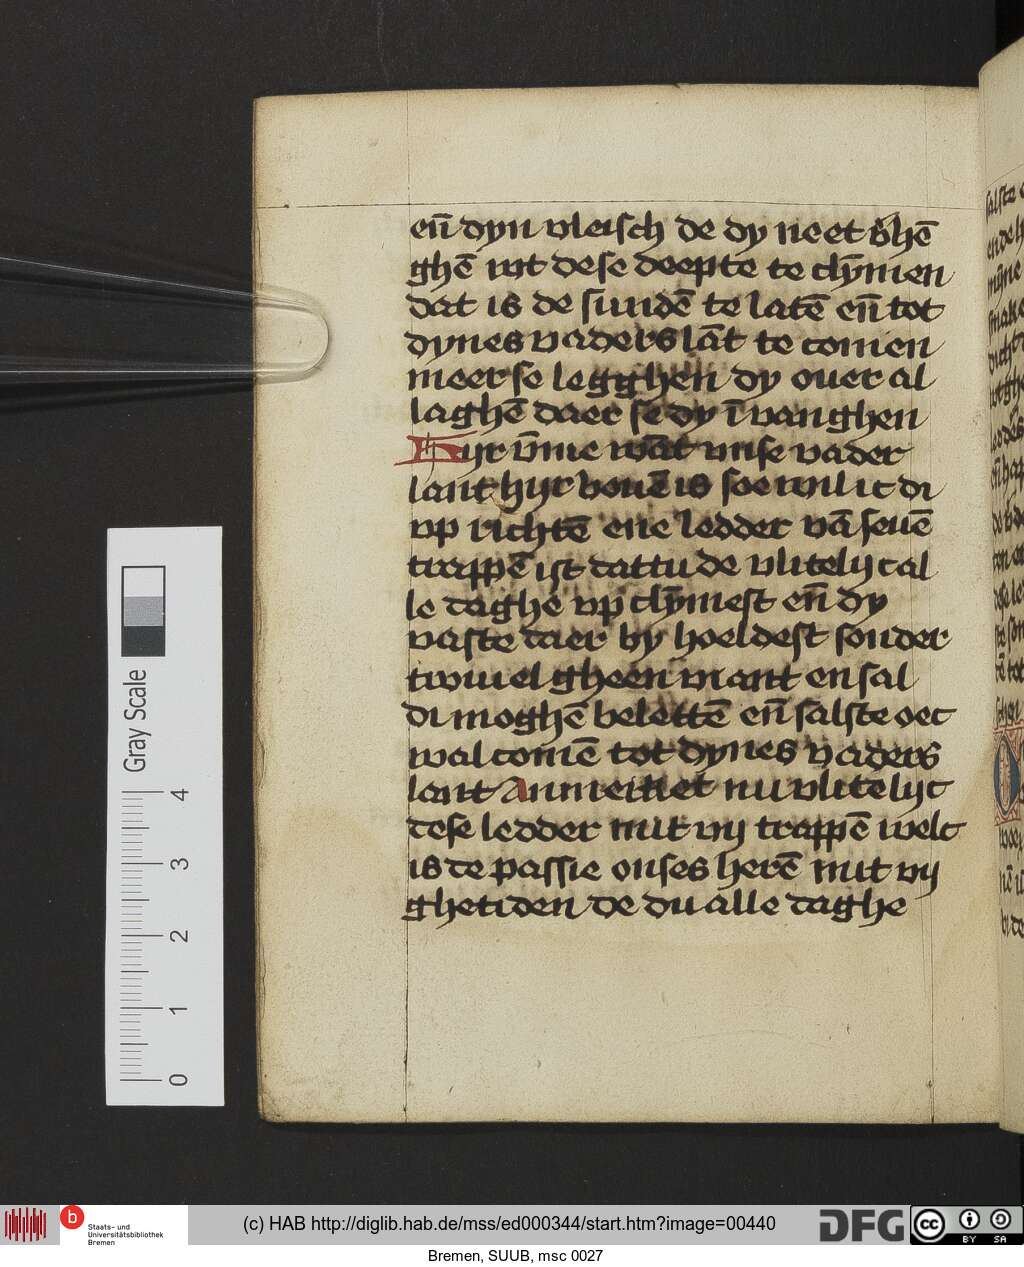 en̄ dyn vleisch de dy neet v̄hē
ghē wt dese deepte te clȳmen
dat is de sundē te latē en̄ tot
dynes vaders lāt te comen
meer se legghen dy ouer al
laghē daer se dy ī vanghen
Hyr v̄me wāt unse vader
lant hijr bouē is soe wil ic di
vp richtē ene ledder vā seuē
trappē ist dattu de vlitelijc al
le daghe vp clȳmest en̄ dy
vaste daer by hoeldest sonder
twiuel gheen viant en sal
di moghē belettē en̄ salste oec
wal comē tot dynes vaders
lant Anmerket nu vlitelijc
dese ledder mit vij trappē welc
is de passie onses herē mit vij
ghetiden de du alle daghe
salste
Gray Scale
4
3
2
1
0
b
Staats- und
Universitätsbibliothek
Bremen
(c) HAB http://diglib.hab.de/mss/ed000344/start.htm?image=00440
DFG
cc
BY SA
Bremen, SUUB, msc 0027